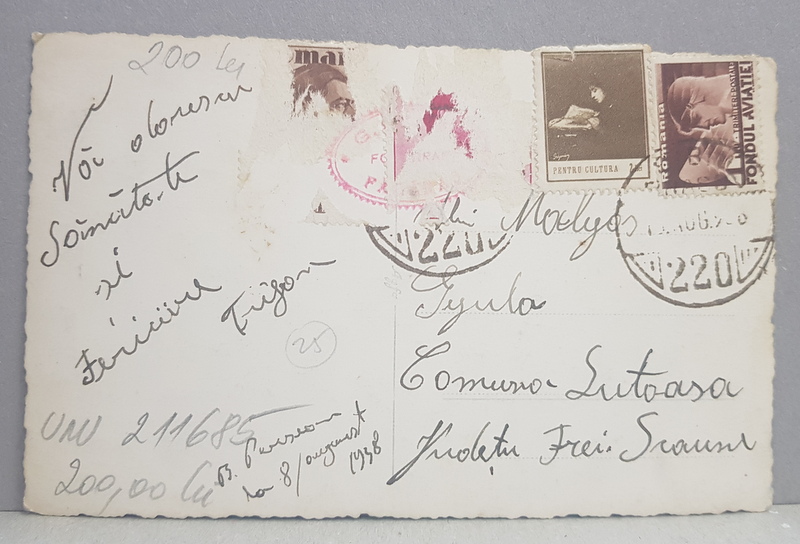 200 lei
Vói dorescu
Sănătate
și
Fericire
Trifon
25
UNU 211685
200,00 lei
la 8/august
1938
mai
PENTRU CULTURA
Romania
FONDUL AVIATIEI
220
AUG
220
Madyos
Gyula
Comuna Lutoasa
Județu Trei Scaune